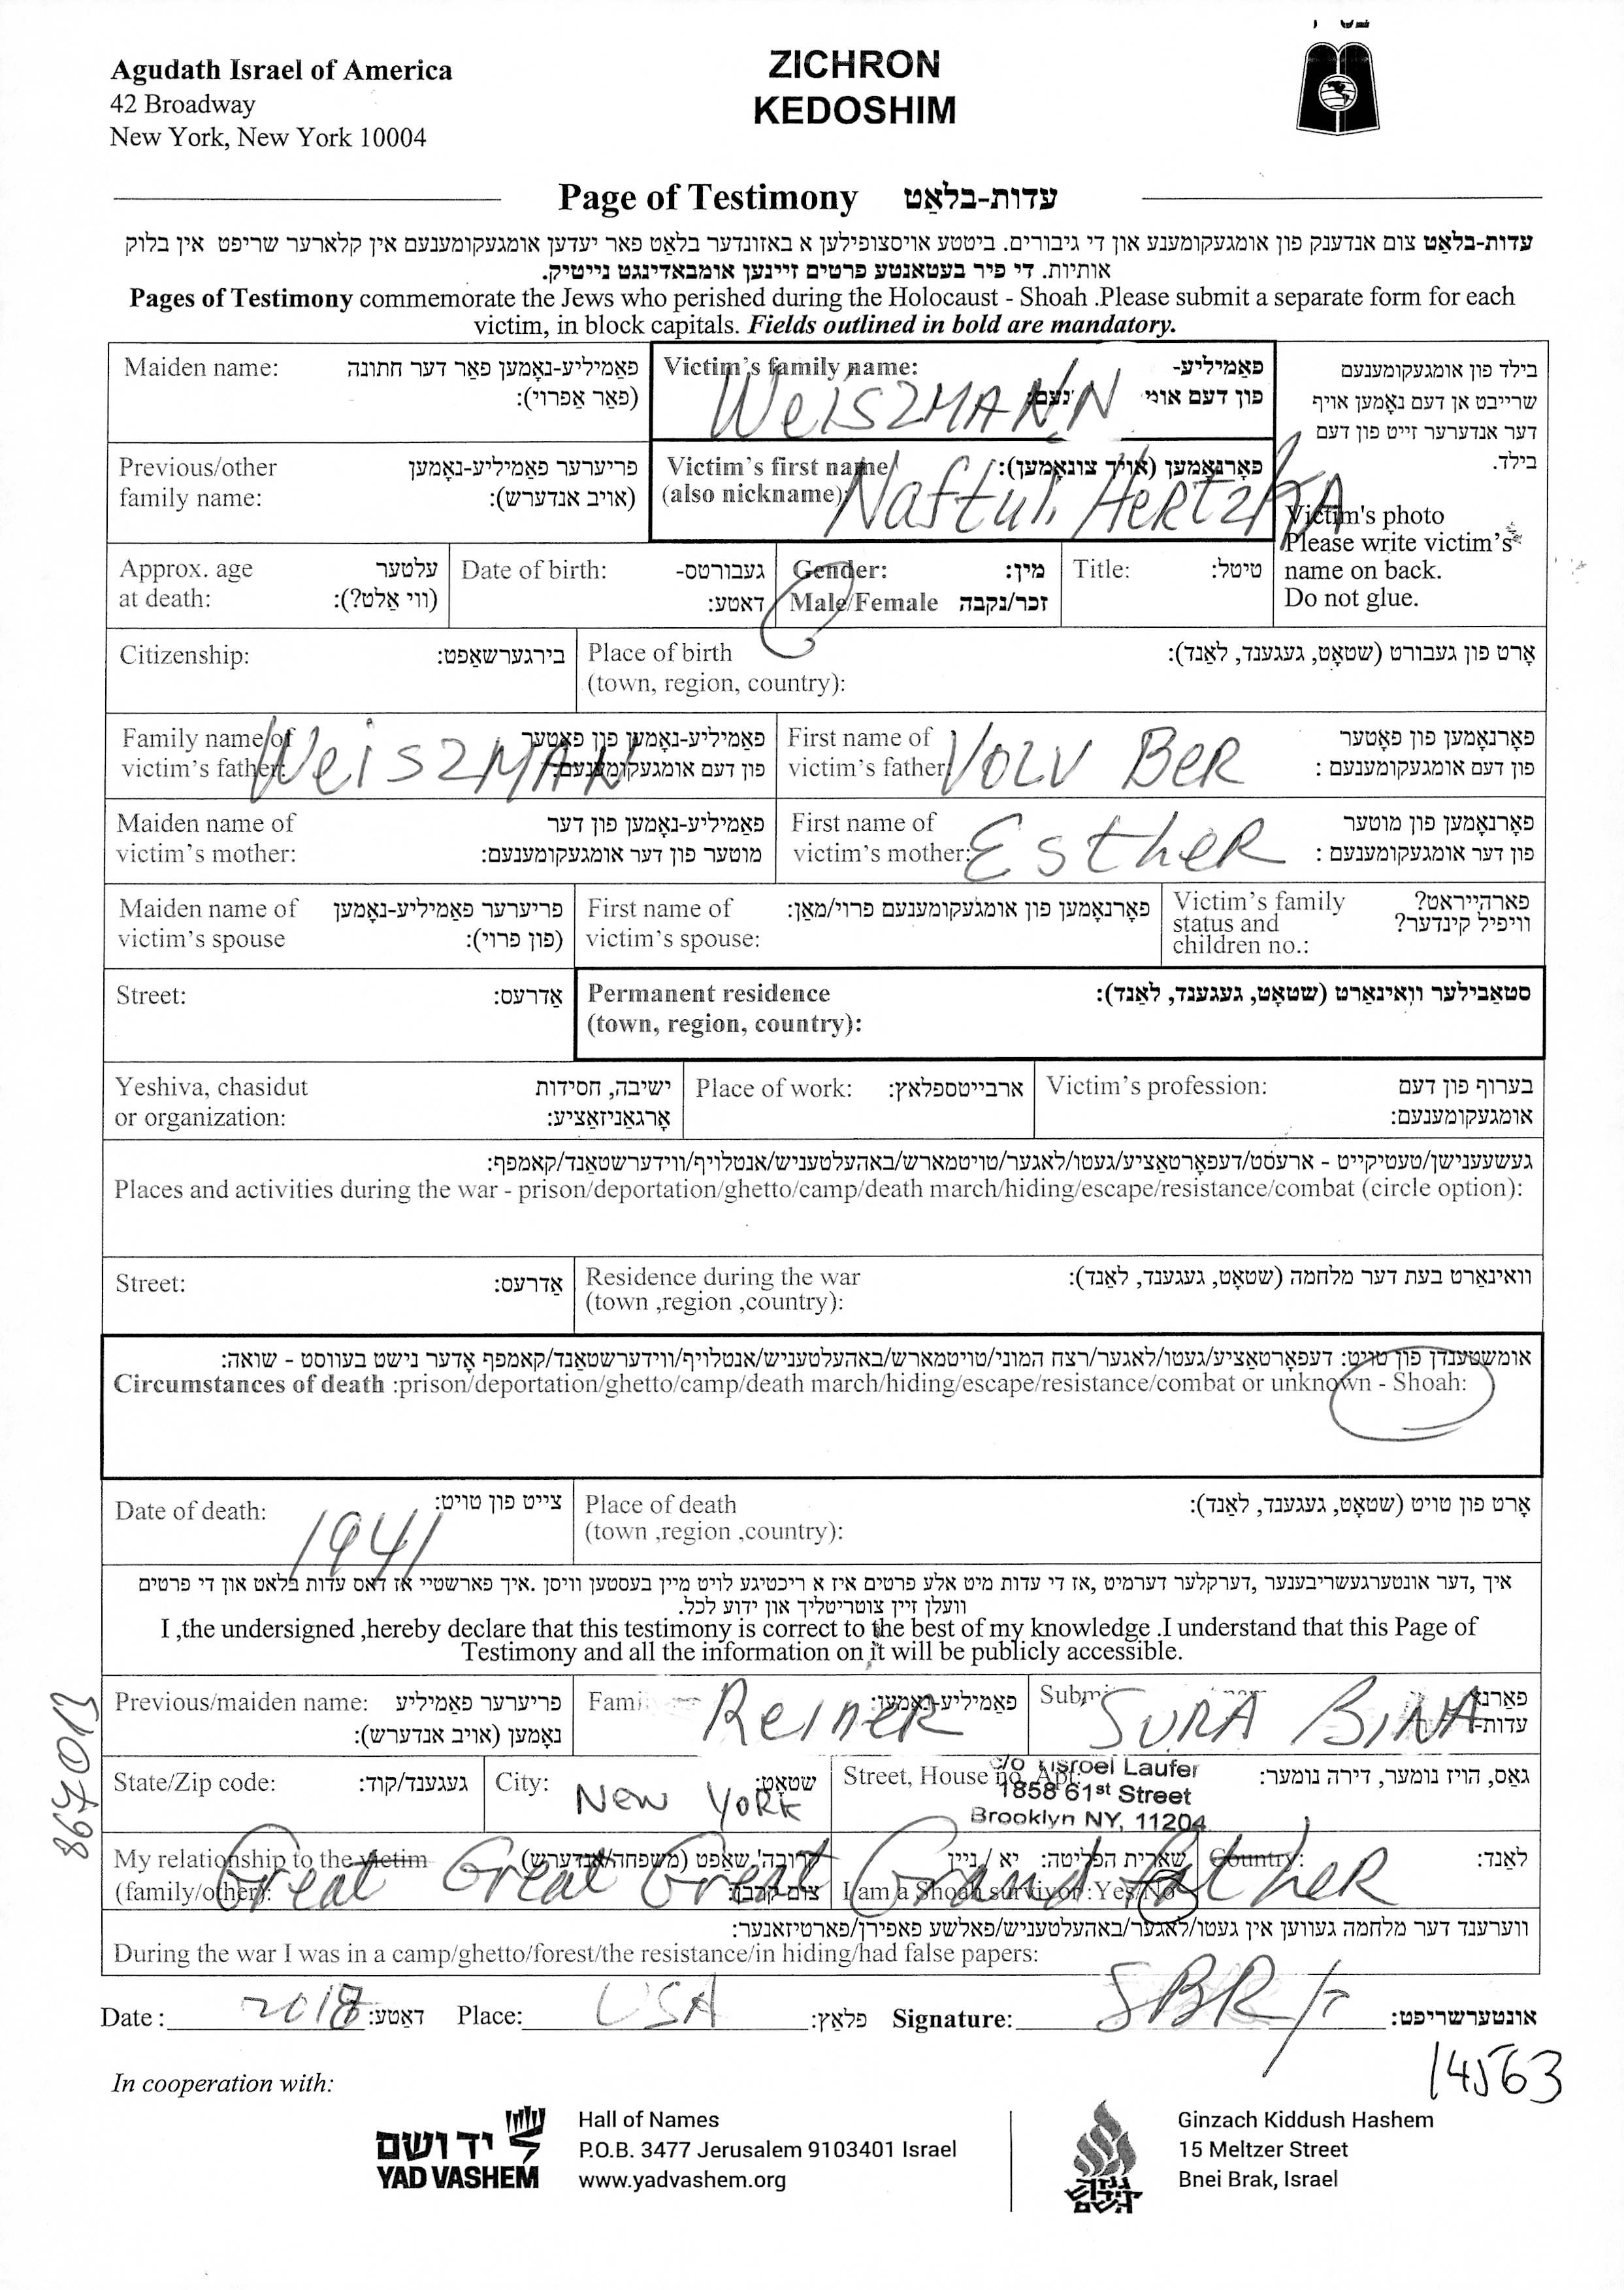 Agudath Israel of America
42 Broadway
New York, New York 10004
ZICHRON
KEDOSHIM
Page of Testimony עדות-בלאַט
עדות-בלאַט צום אנדענק פון אומגעקומענע און די גיבורים. ביטטע אויסצופילען א באזונדער בלאַט פאר יעדען אומגעקומענעם אין קלארער שריפט אין בלוק
אותיות. די פיר בעטאנטע פרטים זיינען אומבאדינגט נייטיק.
Pages of Testimony commemorate the Jews who perished during the Holocaust - Shoah .Please submit a separate form for each
victim, in block capitals. Fields outlined in bold are mandatory.
Maiden name: פאַמיליע-נאָמען פאַר דער חתונה
(פאַר אַפרוי):
Victim's family name: פאַמיליע-
פון דעם
WeiszMANN
בילד פון אומגעקומענעם
שרייבט אן דעם נאָמען אויף
דער אנדערער זייט פון דעם
בילד.
Previous/other פריערער פאַמיליע-נאָמען
family name: (אויב אנדערש):
Victim's first name פאָרנאָמען (אויך צונאָמען):
(also nickname):
Naftuli HeRtzKA
Victim's photo
Please write victim's
name on back.
Do not glue.
Approx. age עלטער
at death: (ווי אַלט?):
Date of birth: געבורטס-
דאטע:
Gender: מין:
Male/Female זכר/נקבה
Title: טיטל:
Citizenship: בירגערשאַפט:
Place of birth אָרט פון געבורט (שטאָט, געגענד, לאַנד):
(town, region, country):
Family name of פאַמיליע-נאָמען פון פאָטער
victim's father: פון דעם אומגעקומענעם:
WeiszMAN
First name of פאָרנאָמען פון פאָטער
victim's father: פון דעם אומגעקומענעם :
Volv BeR
Maiden name of פאַמיליע-נאָמען פון דער
victim's mother: מוטער פון דער אומגעקומענעם:
First name of פאָרנאָמען פון מוטער
victim's mother: פון דער אומגעקומענעם :
EstheR
Maiden name of פריערער פאַמיליע-נאָמען
victim's spouse (פון פרוי):
First name of פאָרנאָמען פון אומגעקומענעם פרוי/מאַן:
victim's spouse:
Victim's family פארהייראט?
status and וויפיל קינדער?
children no.:
Street: אַדרעס:
Permanent residence סטאַבילער וואוינאַרט (שטאָט, געגענד, לאַנד):
(town, region, country):
Yeshiva, chasidut ישיבה, חסידות
or organization: אָרגאַניזאַציע:
Place of work: ארבייטספלאץ:
Victim's profession: בערוף פון דעם
אומגעקומענעם:
געשעענישן/טעטיקייט - ארעסט/דעפּאָרטאַציע/געטו/לאגער/טויטמארש/באהעלטעניש/אנטלויף/ווידערשטאַנד/קאמפף:
Places and activities during the war - prison/deportation/ghetto/camp/death march/hiding/escape/resistance/combat (circle option):
Street: אַדרעס:
Residence during the war וואוינאַרט בעת דער מלחמה (שטאָט, געגענד, לאַנד):
(town ,region ,country):
אומשטענדן פון טויט: דעפּאָרטאַציע/געטו/לאגער/רצח המוני/טויטמארש/באהעלטעניש/אנטלויף/ווידערשטאַנד/קאמפף אָדער נישט בעוווסט - שואה:
Circumstances of death :prison/deportation/ghetto/camp/death march/hiding/escape/resistance/combat or unknown - Shoah:
Date of death: צייט פון טויט:
1941
Place of death אָרט פון טויט (שטאָט, געגענד, לאַנד):
(town ,region ,country):
איך ,דער אונטערגעשריבענער ,דערקלער דערמיט ,אז די עדות מיט אלע פרטים איז א ריכטיגע לויט מיין בעסטען וויסן .איך פארשטיי אז דאס עדות בלאט און די פרטים
וועלן זיין צוטריטליך און ידוע לכל.
I ,the undersigned ,hereby declare that this testimony is correct to the best of my knowledge .I understand that this Page of
Testimony and all the information on it will be publicly accessible.
Previous/maiden name: פריערער פאַמיליע
נאָמען (אויב אנדערש):
פאַמיליע-נאָמען:
ReineR
SURA BINA
State/Zip code: געגענד/קוד:
City: שטאָט:
New YoRK
Street, House no. Apt: גאַס, הויז נומער, דירה נומער:
c/o Yisroel Laufer
1858 61st Street
Brooklyn NY, 11204
My relationship to the victim קרובה'שאַפט (משפחה/אנדערש)
(family/other): צום קרבן:
שארית הפליטה: יא / ניין
I am a Shoah survivor :Yes/No
Country: לאַנד:
Great Great Great GrandfatheR
ווערענד דער מלחמה געווען אין געטו/לאגער/באהעלטעניש/פאלשע פאפירן/פארטיזאנער:
During the war I was in a camp/ghetto/forest/the resistance/in hiding/had false papers:
Date : 2018 דאטע: Place: USA פלאַץ: Signature: SBR אונטערשריפט:
8667013
14563
In cooperation with:
יד ושם
YAD VASHEM
Hall of Names
P.O.B. 3477 Jerusalem 9103401 Israel
www.yadvashem.org
Ginzach Kiddush Hashem
15 Meltzer Street
Bnei Brak, Israel